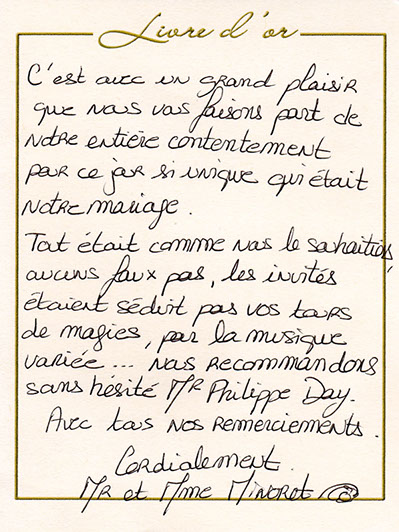 Livre d'or
C'est avec un grand plaisir
que nous vous faisons part de
notre entière contentement
pour ce jour si unique qui était
notre mariage.
Tout était comme nous le souhaitions,
aucuns faux pas, les invités
étaient séduit pas vos tours
de magies, par la musique
variée ... nous recommandons
sans hésité Mr Philippe Day.
Avec tous nos remerciements.
Cordialement.
Mr et Mme Minoret